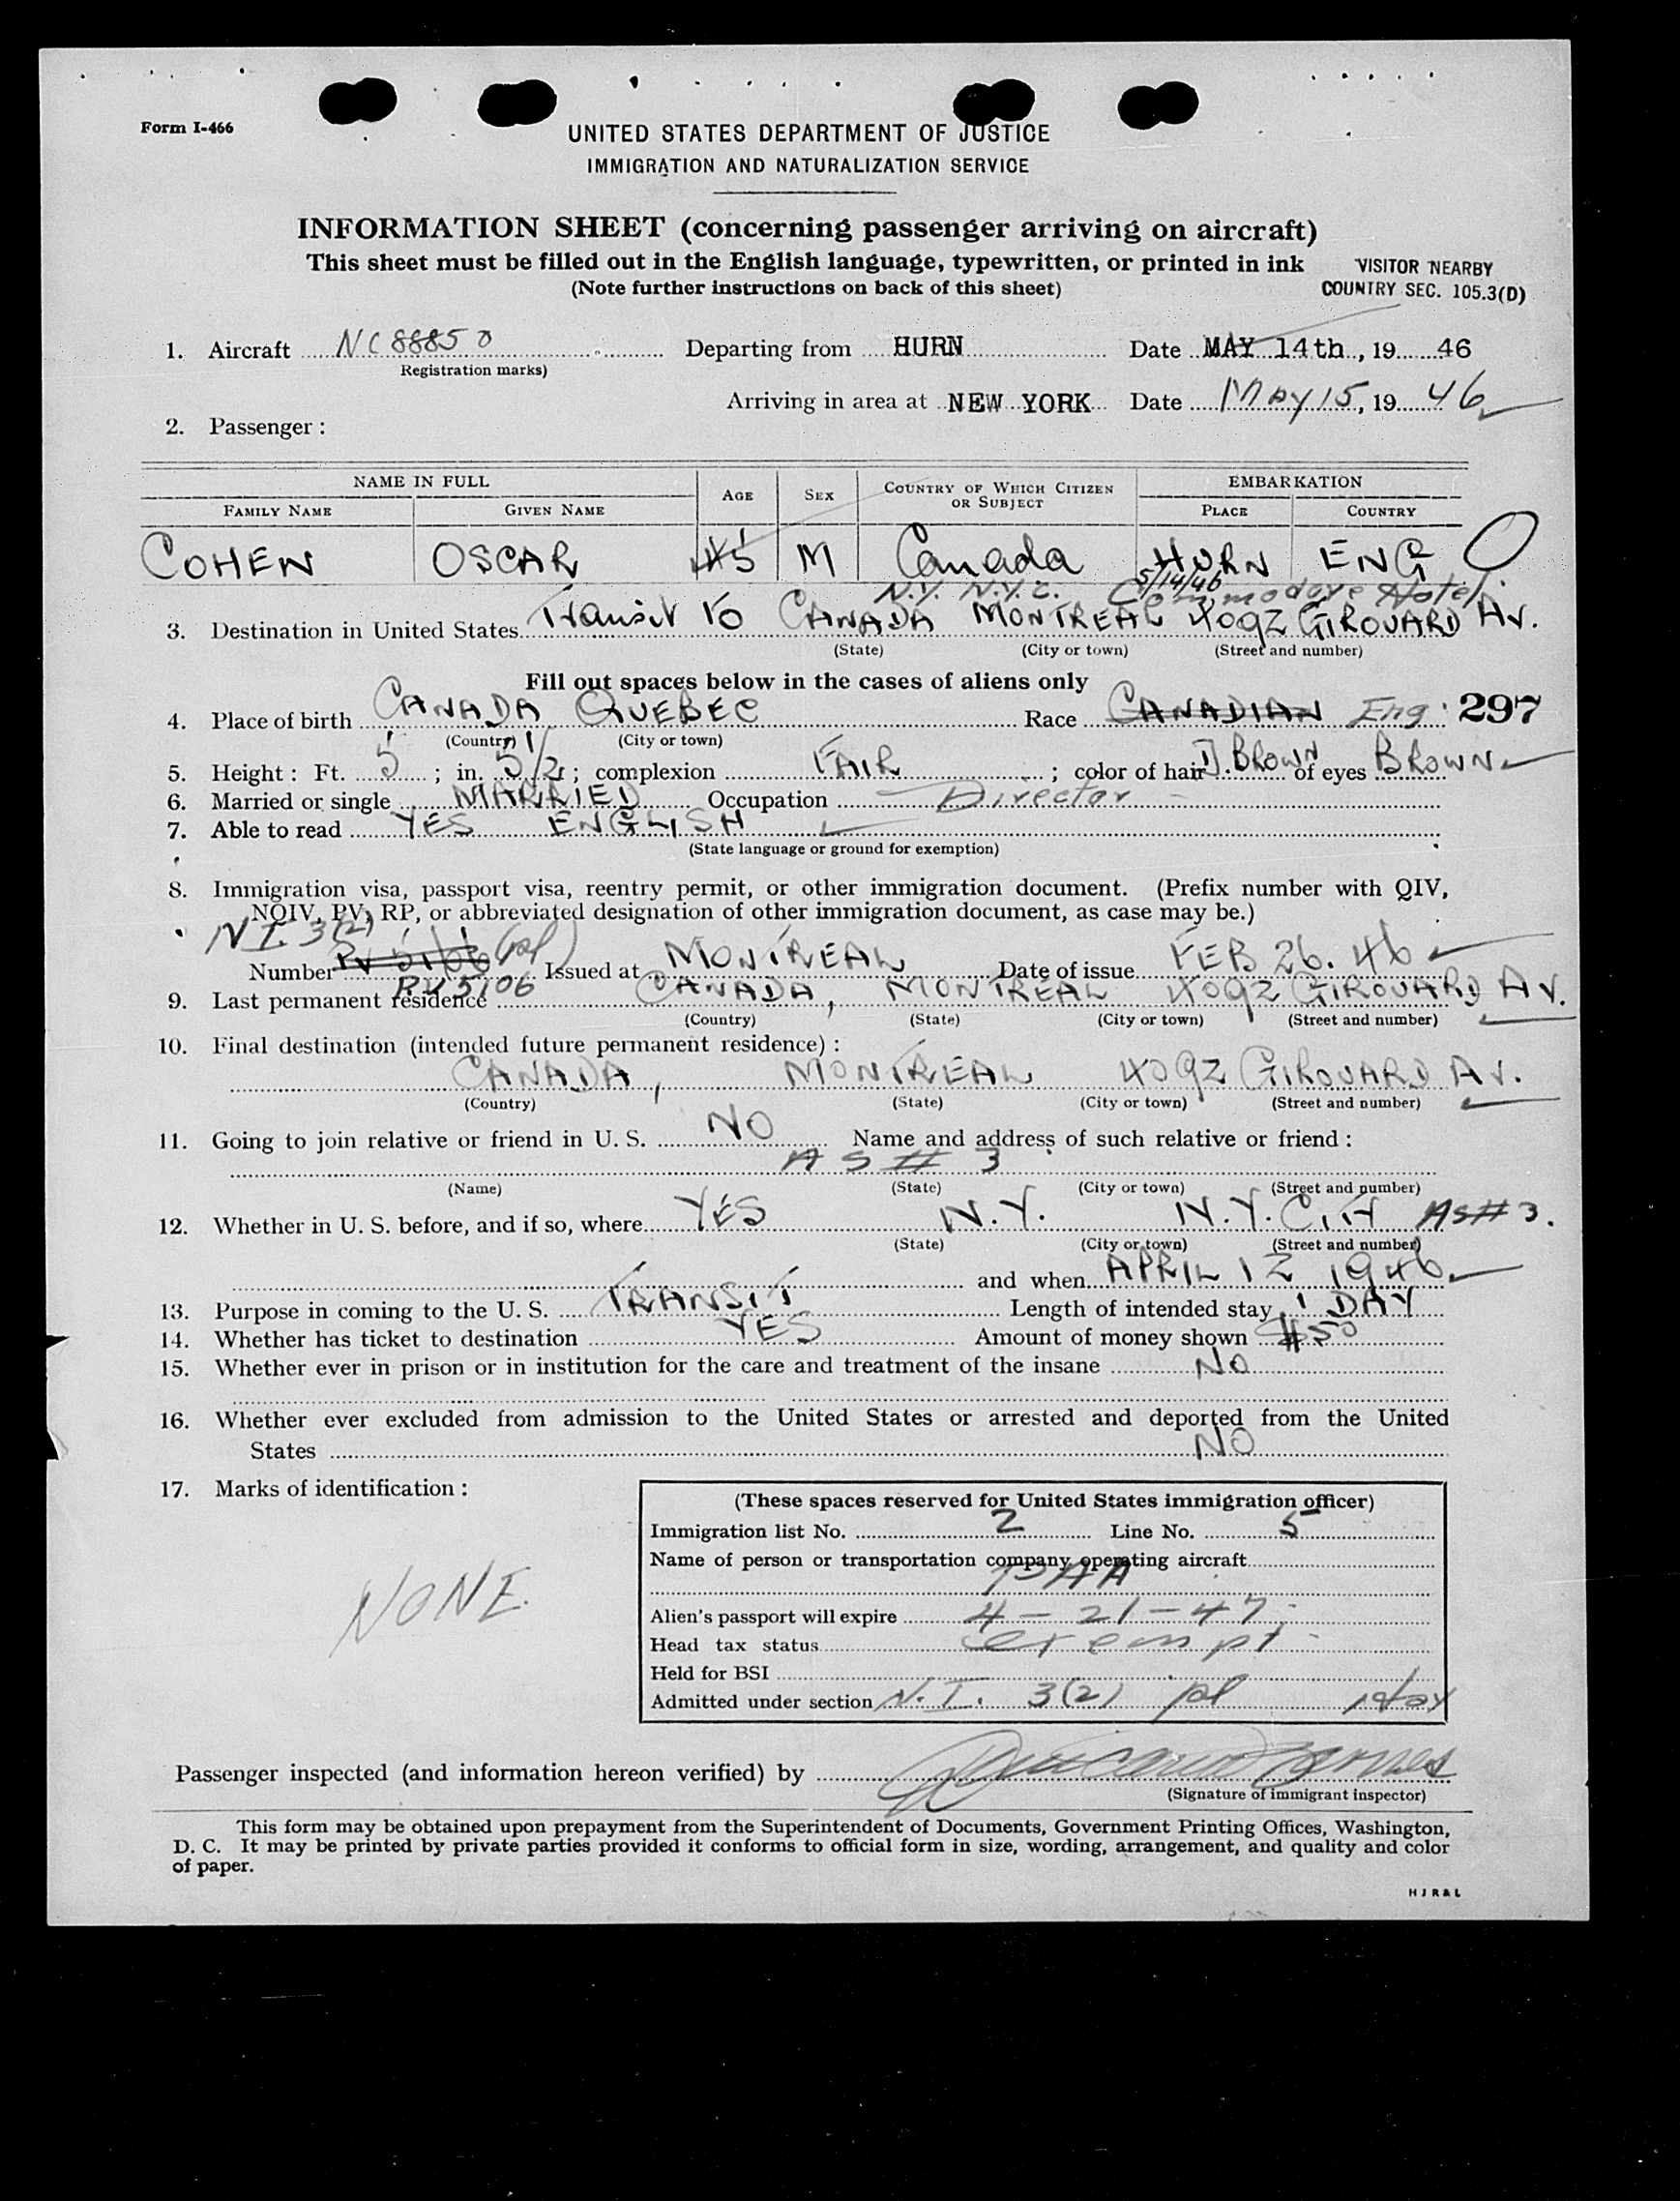 Form I-466
UNITED STATES DEPARTMENT OF JUSTICE
IMMIGRATION AND NATURALIZATION SERVICE
INFORMATION SHEET (concerning passenger arriving on aircraft)
This sheet must be filled out in the English language, typewritten, or printed in ink
(Note further instructions on back of this sheet)
VISITOR NEARBY
COUNTRY SEC. 105.3(D)
1. Aircraft NC 88850 Departing from HURN Date MAY 14th, 19 46
Registration marks)
Arriving in area at NEW YORK Date MAY 15, 19 46
2. Passenger:
NAME IN FULL AGE SEX COUNTRY OF WHICH CITIZEN OR SUBJECT EMBARKATION
FAMILY NAME GIVEN NAME PLACE COUNTRY
COHEN OSCAR 45 M Canada HURN ENG O
5/14/46
N.Y. N.Y.C. Commodore Hotel
3. Destination in United States Transit to CANADA MONTREAL 4092 GIROUARD AV.
(State) (City or town) (Street and number)
Fill out spaces below in the cases of aliens only
4. Place of birth CANADA QUEBEC Race CANADIAN Eng. 297
(Country) (City or town)
5. Height: Ft. 5; in. 5 1/2; complexion FAIR; color of hair D. BROWN of eyes BROWN
6. Married or single MARRIED Occupation Director
7. Able to read YES ENGLISH
(State language or ground for exemption)
8. Immigration visa, passport visa, reentry permit, or other immigration document. (Prefix number with QIV,
NQIV, PV, RP, or abbreviated designation of other immigration document, as case may be.)
N.I. 3(2)
Number PV 5106 Issued at MONTREAL Date of issue FEB 26. 46
PV 5106
9. Last permanent residence CANADA, MONTREAL 4092 GIROUARD AV.
(Country) (State) (City or town) (Street and number)
10. Final destination (intended future permanent residence):
CANADA, MONTREAL 4092 GIROUARD AV.
(Country) (State) (City or town) (Street and number)
11. Going to join relative or friend in U. S. NO Name and address of such relative or friend:
AS # 3
(Name) (State) (City or town) (Street and number)
12. Whether in U. S. before, and if so, where YES N.Y. N.Y. CITY AS # 3.
(State) (City or town) (Street and number)
and when APRIL 12 1946
13. Purpose in coming to the U. S. TRANSIT Length of intended stay 1 DAY
14. Whether has ticket to destination YES Amount of money shown $50
15. Whether ever in prison or in institution for the care and treatment of the insane NO
16. Whether ever excluded from admission to the United States or arrested and deported from the United
States NO
17. Marks of identification:
NONE.
(These spaces reserved for United States immigration officer)
Immigration list No. 2 Line No. 5
Name of person or transportation company operating aircraft
PAA
Alien's passport will expire 4-21-47
Head tax status exempt
Held for BSI
Admitted under section N.I. 3(2) pl 1 day
Passenger inspected (and information hereon verified) by
(Signature of immigrant inspector)
This form may be obtained upon prepayment from the Superintendent of Documents, Government Printing Offices, Washington,
D. C. It may be printed by private parties provided it conforms to official form in size, wording, arrangement, and quality and color
of paper.
HJR&L